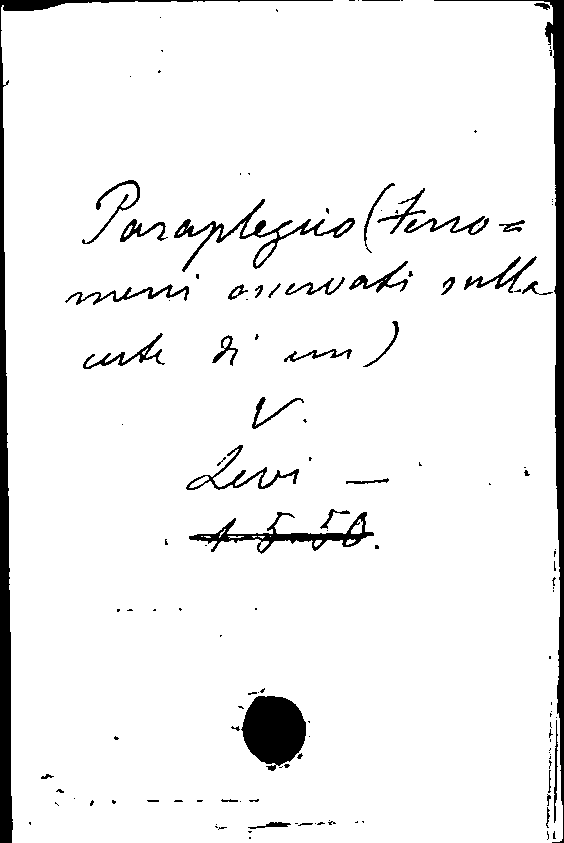 Paraplegico (Feno=
meni osservati sulla
cute di un)
V.
Levi —
1. 5. 50.